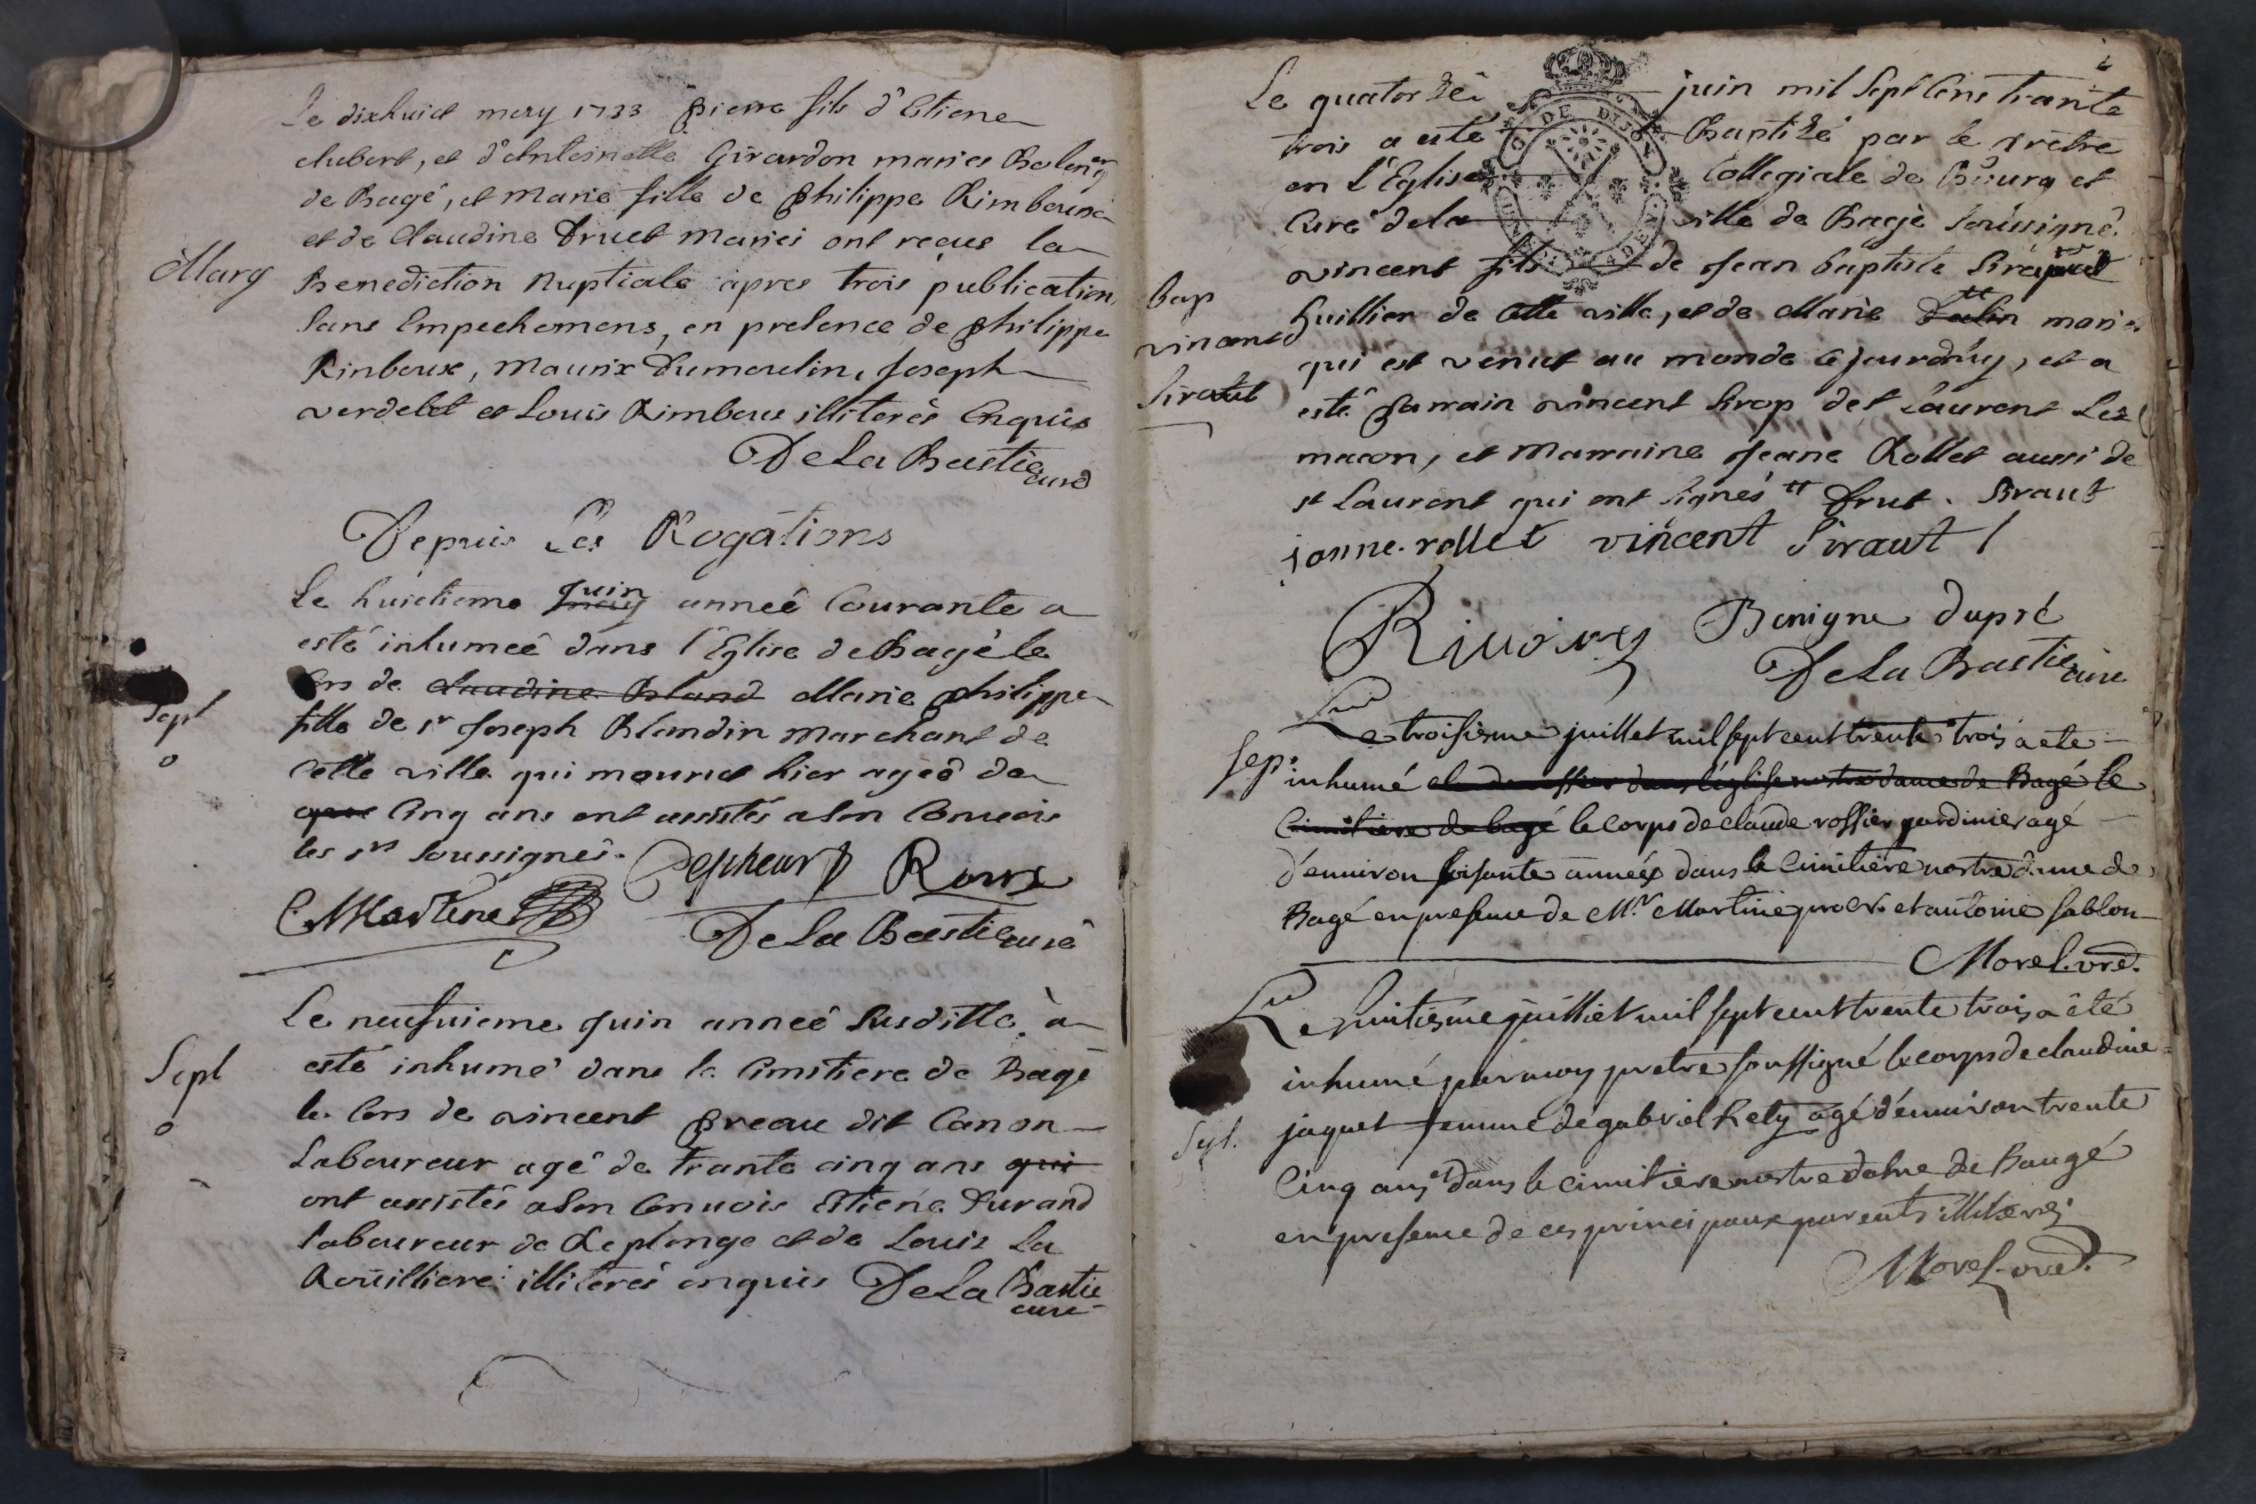 Le dixhuict may 1733 Pierre fils d'Etiene
Aubert, et d'Antoinette Girardon maries
de Bagé, et Marie fille de Philippe Rimboux
et de Claudine Druct Mariés ont recus la
Mary
Benediction Nuptiale apres trois publication
sans Empechemens, en presence de Philippe
Rinboux, Maurix Dumoulin, Joseph
verdelet et Louis Rimboux illiterés Enquis
De La Bastie curé
Depuis Les Rogations
Le huictieme may juin anneé Courante a
esté inhumeé dans l'Eglise de Bagé le
Cors de Claudine Bland Marie Philippe
Sept
fille de sr Joseph Blondin marchant de
Cette ville qui mourut hier ageé de
Cinq ans ont assistés a son Convois
les srs soussignés.
Martine
De La Bastie curé
Le neufuieme Juin anneé Susditte a
Sept
esté inhumé dans le Cimitiere de Bagé
le Cors de vincent Preau dit Canon
Laboureur agé de trante cinq ans qui
ont assistés a son Convois Etiene Durand
laboureur de Replonge et de Louis La
Rouilliere illiterés enquis De La Bastie
curé
Le quatorzé juin mil Sept Cens trante
trois a esté Baptizé par le Prêtre
en l'Eglise Collegiale de Bourg et
Curé de la ville de Bagé soussigné
vincent fils de Jean baptiste
bap
vincent
Siraut
huillier de cette ville, et de Marie marié
qui est venut au monde cejourdhuy, et a
esté Parrain vincent Sirop de st Laurent Les
macon, et Marraine Jeane Rollet aussi de
st Laurent qui ont signés Drut. Siraut
janne. rollet vincent Siraut
Benigne dupré
De La Bastie curé
Le troisieme juillet mil sept cent trente trois a ete
Sept
inhumé dans l'église nostre dame de Bagé le
Cimitiere de bagé le corps de claude rossier jardinier agé
d'environ soisante années dans le Cimitiere nostre dame de
Bagé en presence de Mr. Martine et antoine sablon
Morel.
Le huitiesme juilliet mil sept cent trente trois a été
inhumé par moy pretre soussigné le corps de claudine
Sept.
jaquet femme de gabriel Rety agé d'environ trente
Cinq ans dans le cimitiere nostre dame de Baugé
en presence de ces principaux parents illiterés
Morel.